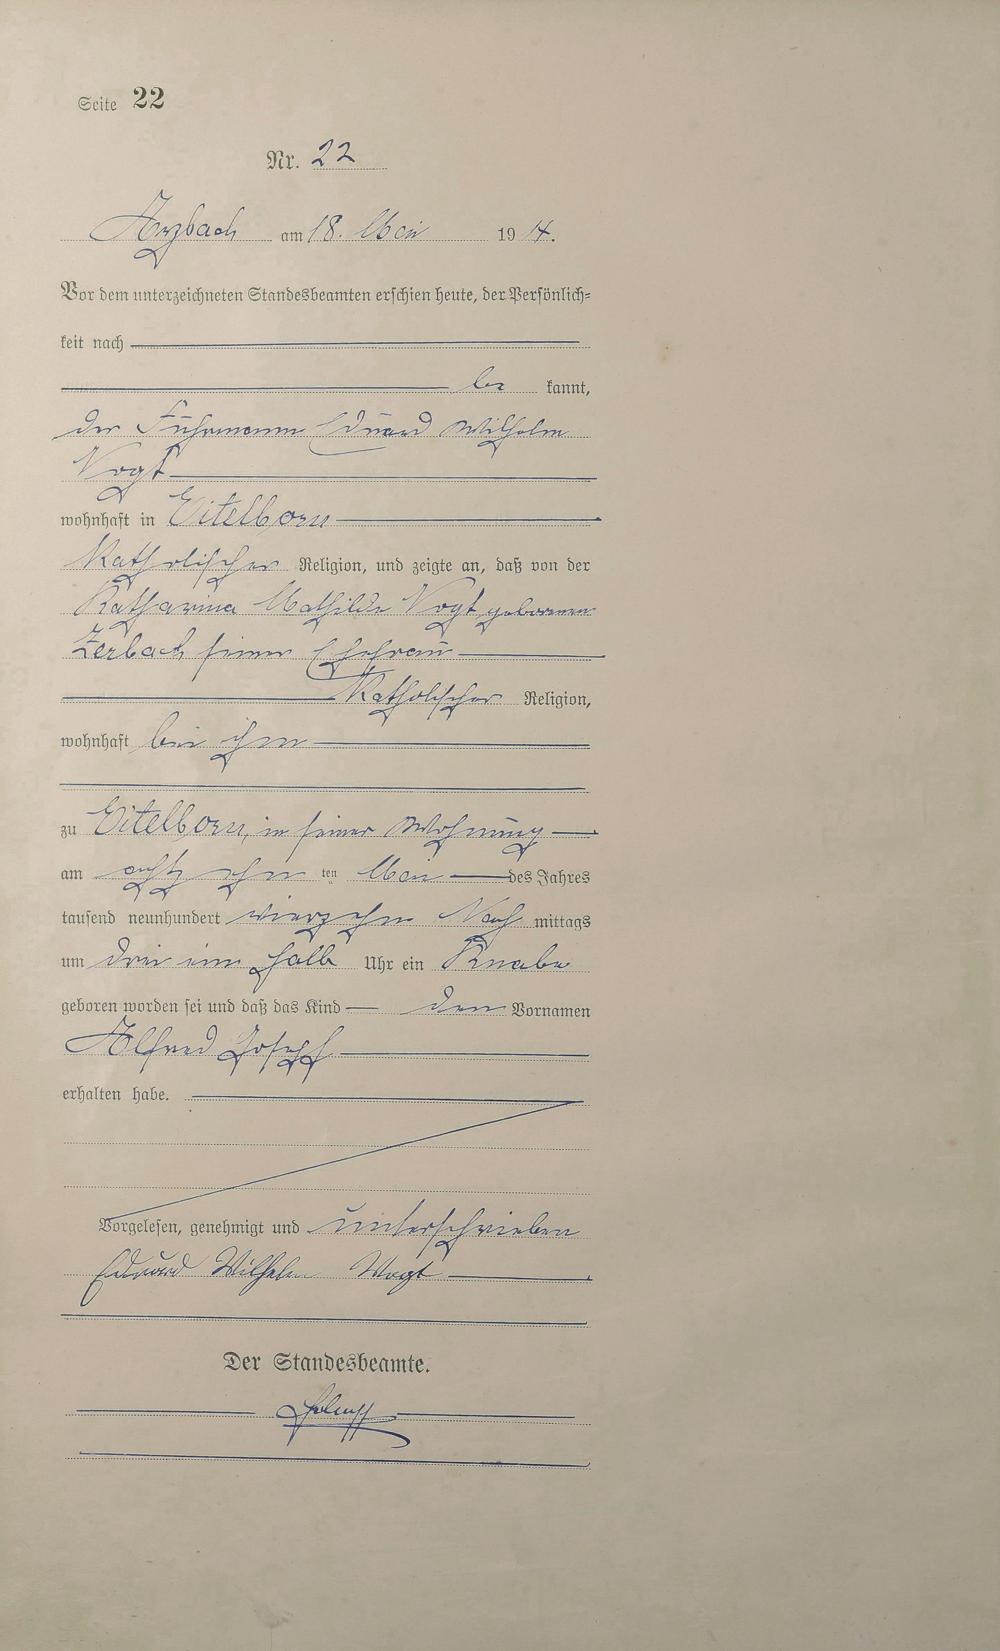 Seite 22
Nr. 22
Arzbach am 18. Mai 1914.
Vor dem unterzeichneten Standesbeamten erschien heute, der Persönlich=
keit nach
be kannt,
der Fuhrmann Eduard Wilhelm
Vogt
wohnhaft in Eitelborn
katholischer Religion, und zeigte an, daß von der
Katharina Mathilde Vogt geborenen
Zerbach seiner Ehefrau
katholischer Religion,
wohnhaft bei ihm
zu Eitelborn, in seiner Wohnung
am achtzehn ten Mai des Jahres
tausend neunhundert vierzehn Nach mittags
um drei ein halb Uhr ein Knabe
geboren worden sei und daß das Kind den Vornamen
Alfred Joseph
erhalten habe.
Vorgelesen, genehmigt und unterschrieben
Eduard Wilhelm Vogt
Der Standesbeamte.